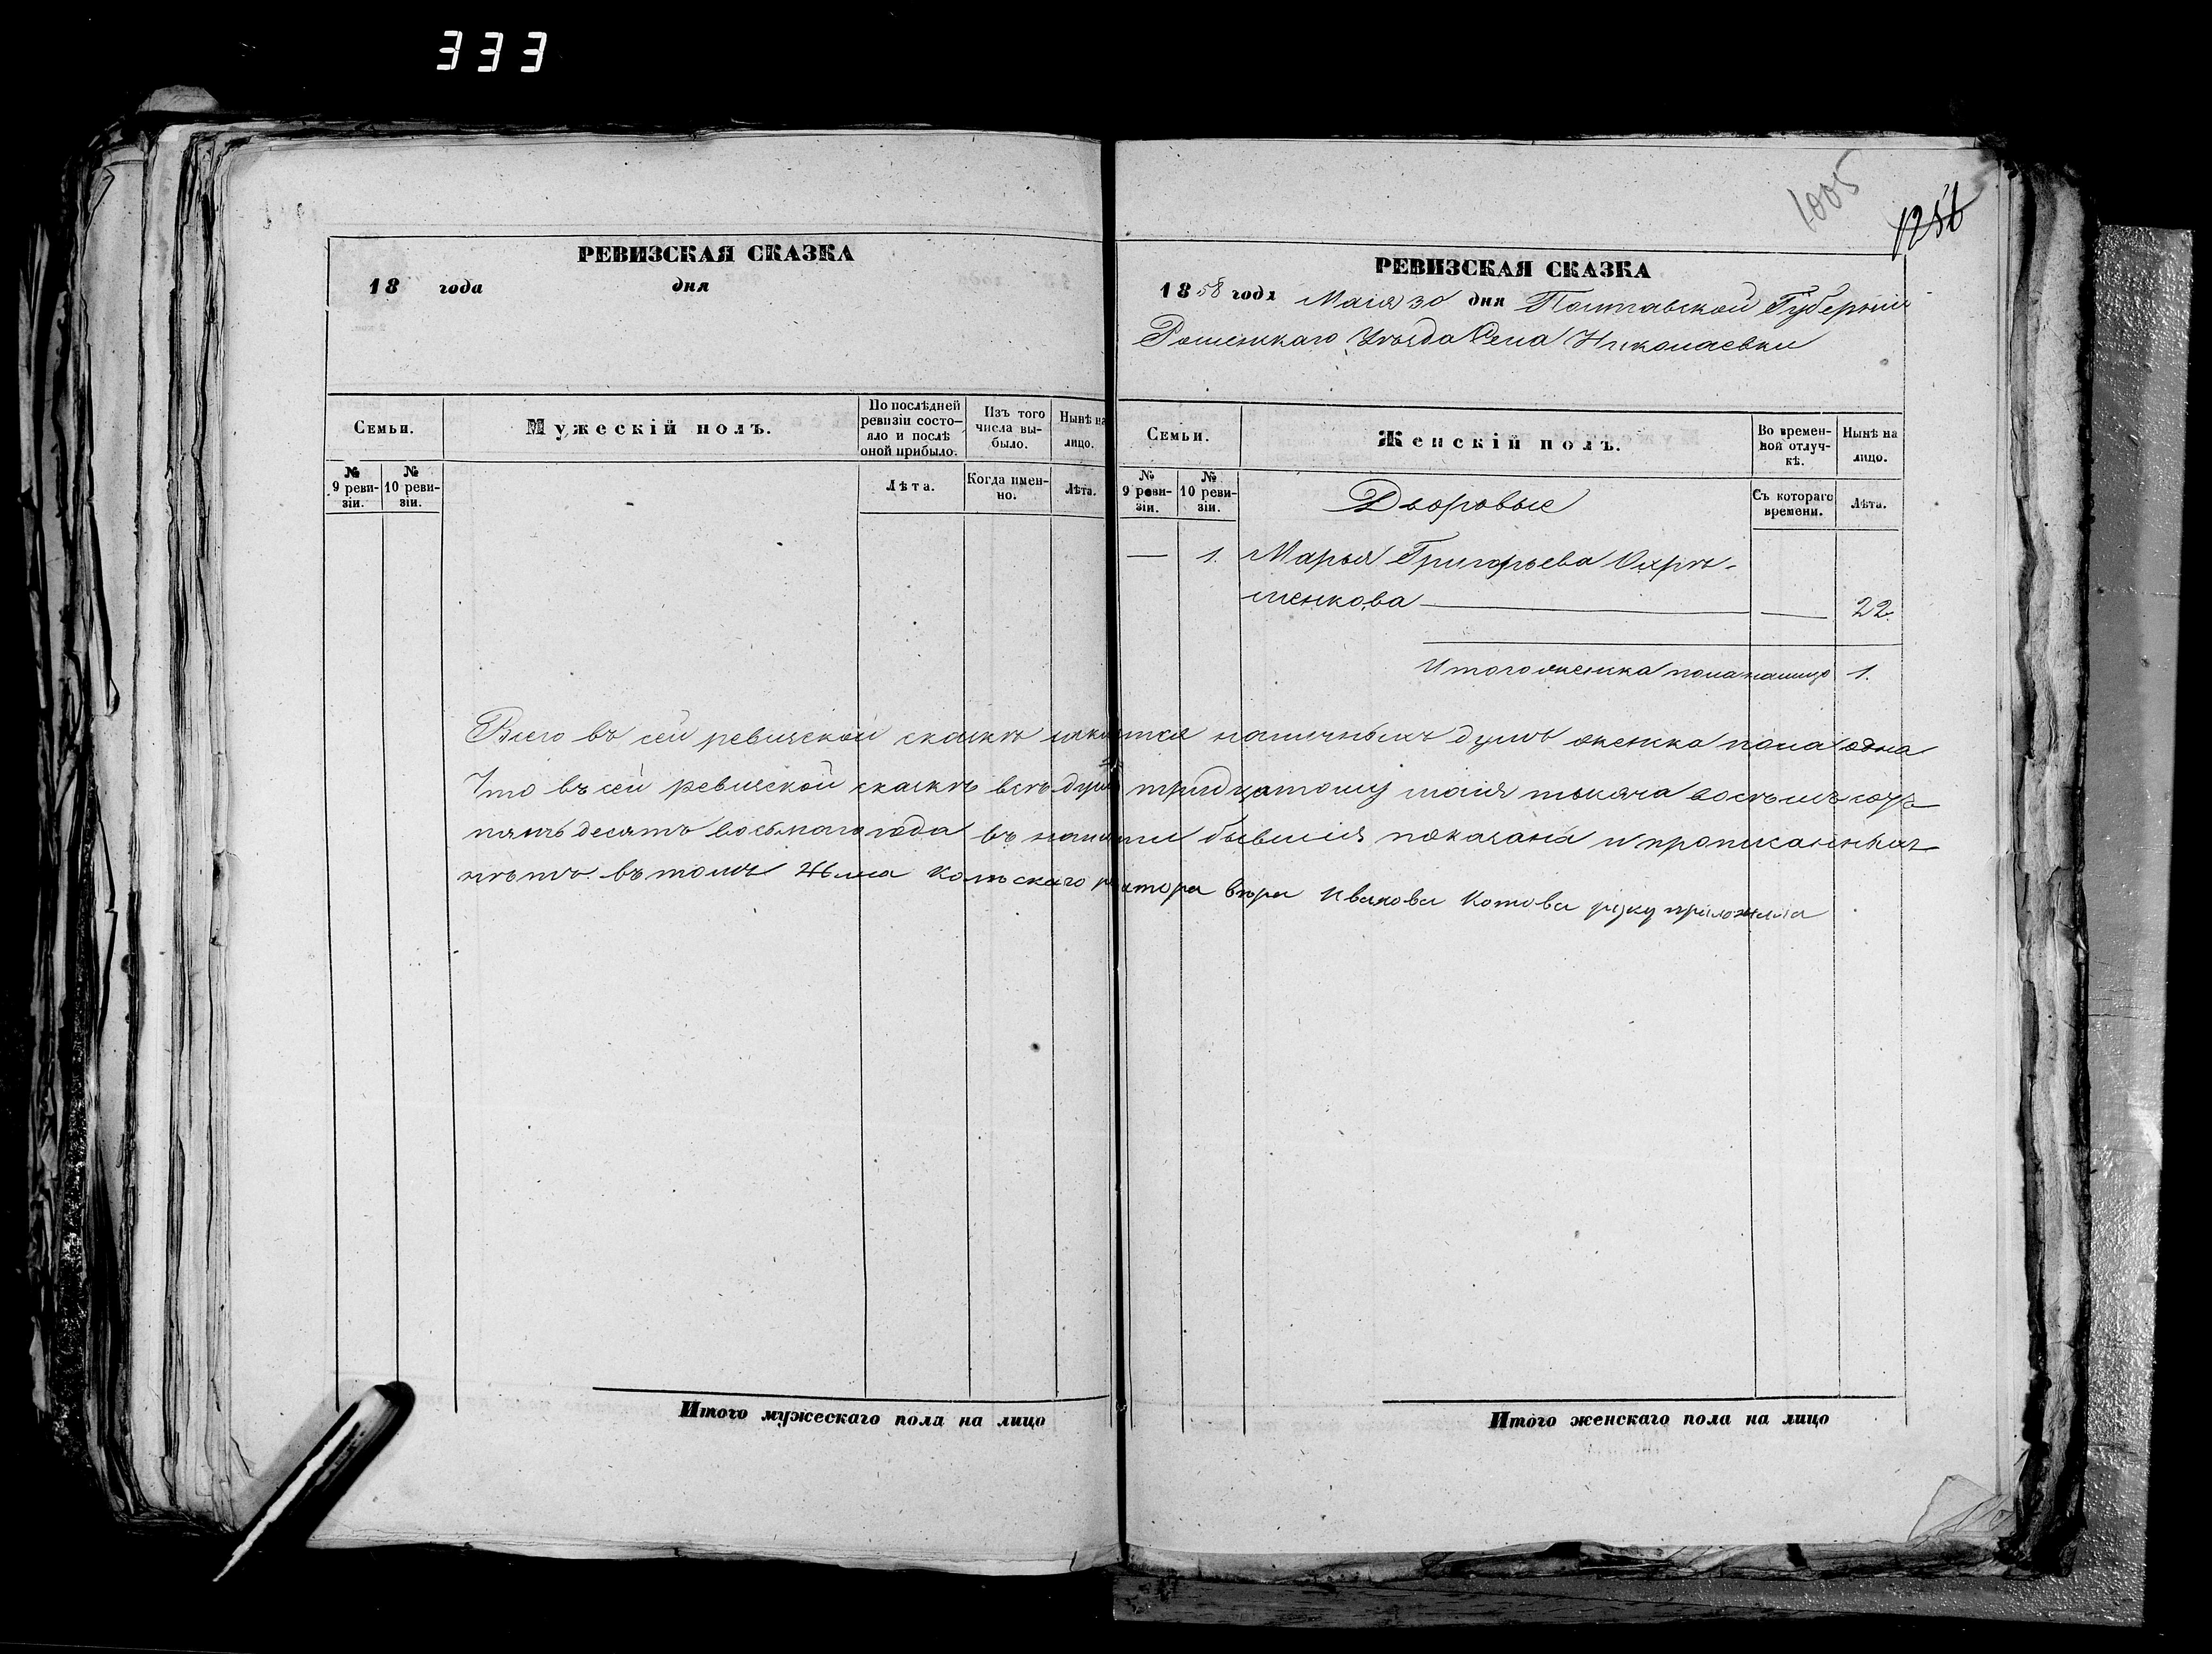 333
1005
1256
РЕВИЗСКАЯ СКАЗКА
18 года дня
Семьи.
Мужескій полъ.
По послѣдней ревизіи состояло и послѣ оной прибыло.
Изъ того числа выбыло.
Нынѣ на лицо.
№ 9 ревизіи.
№ 10 ревизіи.
Лѣта.
Когда именно.
Лѣта.
РЕВИЗСКАЯ СКАЗКА
1858 года Маія 30 дня Полтавской Губерніи
Роменскаго Уѣзда Села Николаевки
Семьи.
Женскій полъ.
Во временной отлучкѣ.
Нынѣ на лицо.
№ 9 ревизіи.
№ 10 ревизіи.
Дворовые
Съ котораго времени.
Лѣта.
— 1. Марья Григорьева
менкова — — 22.
Итого женска пола налицо 1.
Всего въ сей ревизской сказкѣ наличныхъ душъ женска пола одна
Что въ сей ревизской сказкѣ всѣ души тридцатому маія тысяча восемь сотъ
пять десятъ восьмаго года въ бывшія показана и прописанныхъ
нѣтъ въ томъ Жена Вера Иванова Котова руку приложила
Итого мужескаго пола на лицо
Итого женскаго пола на лицо